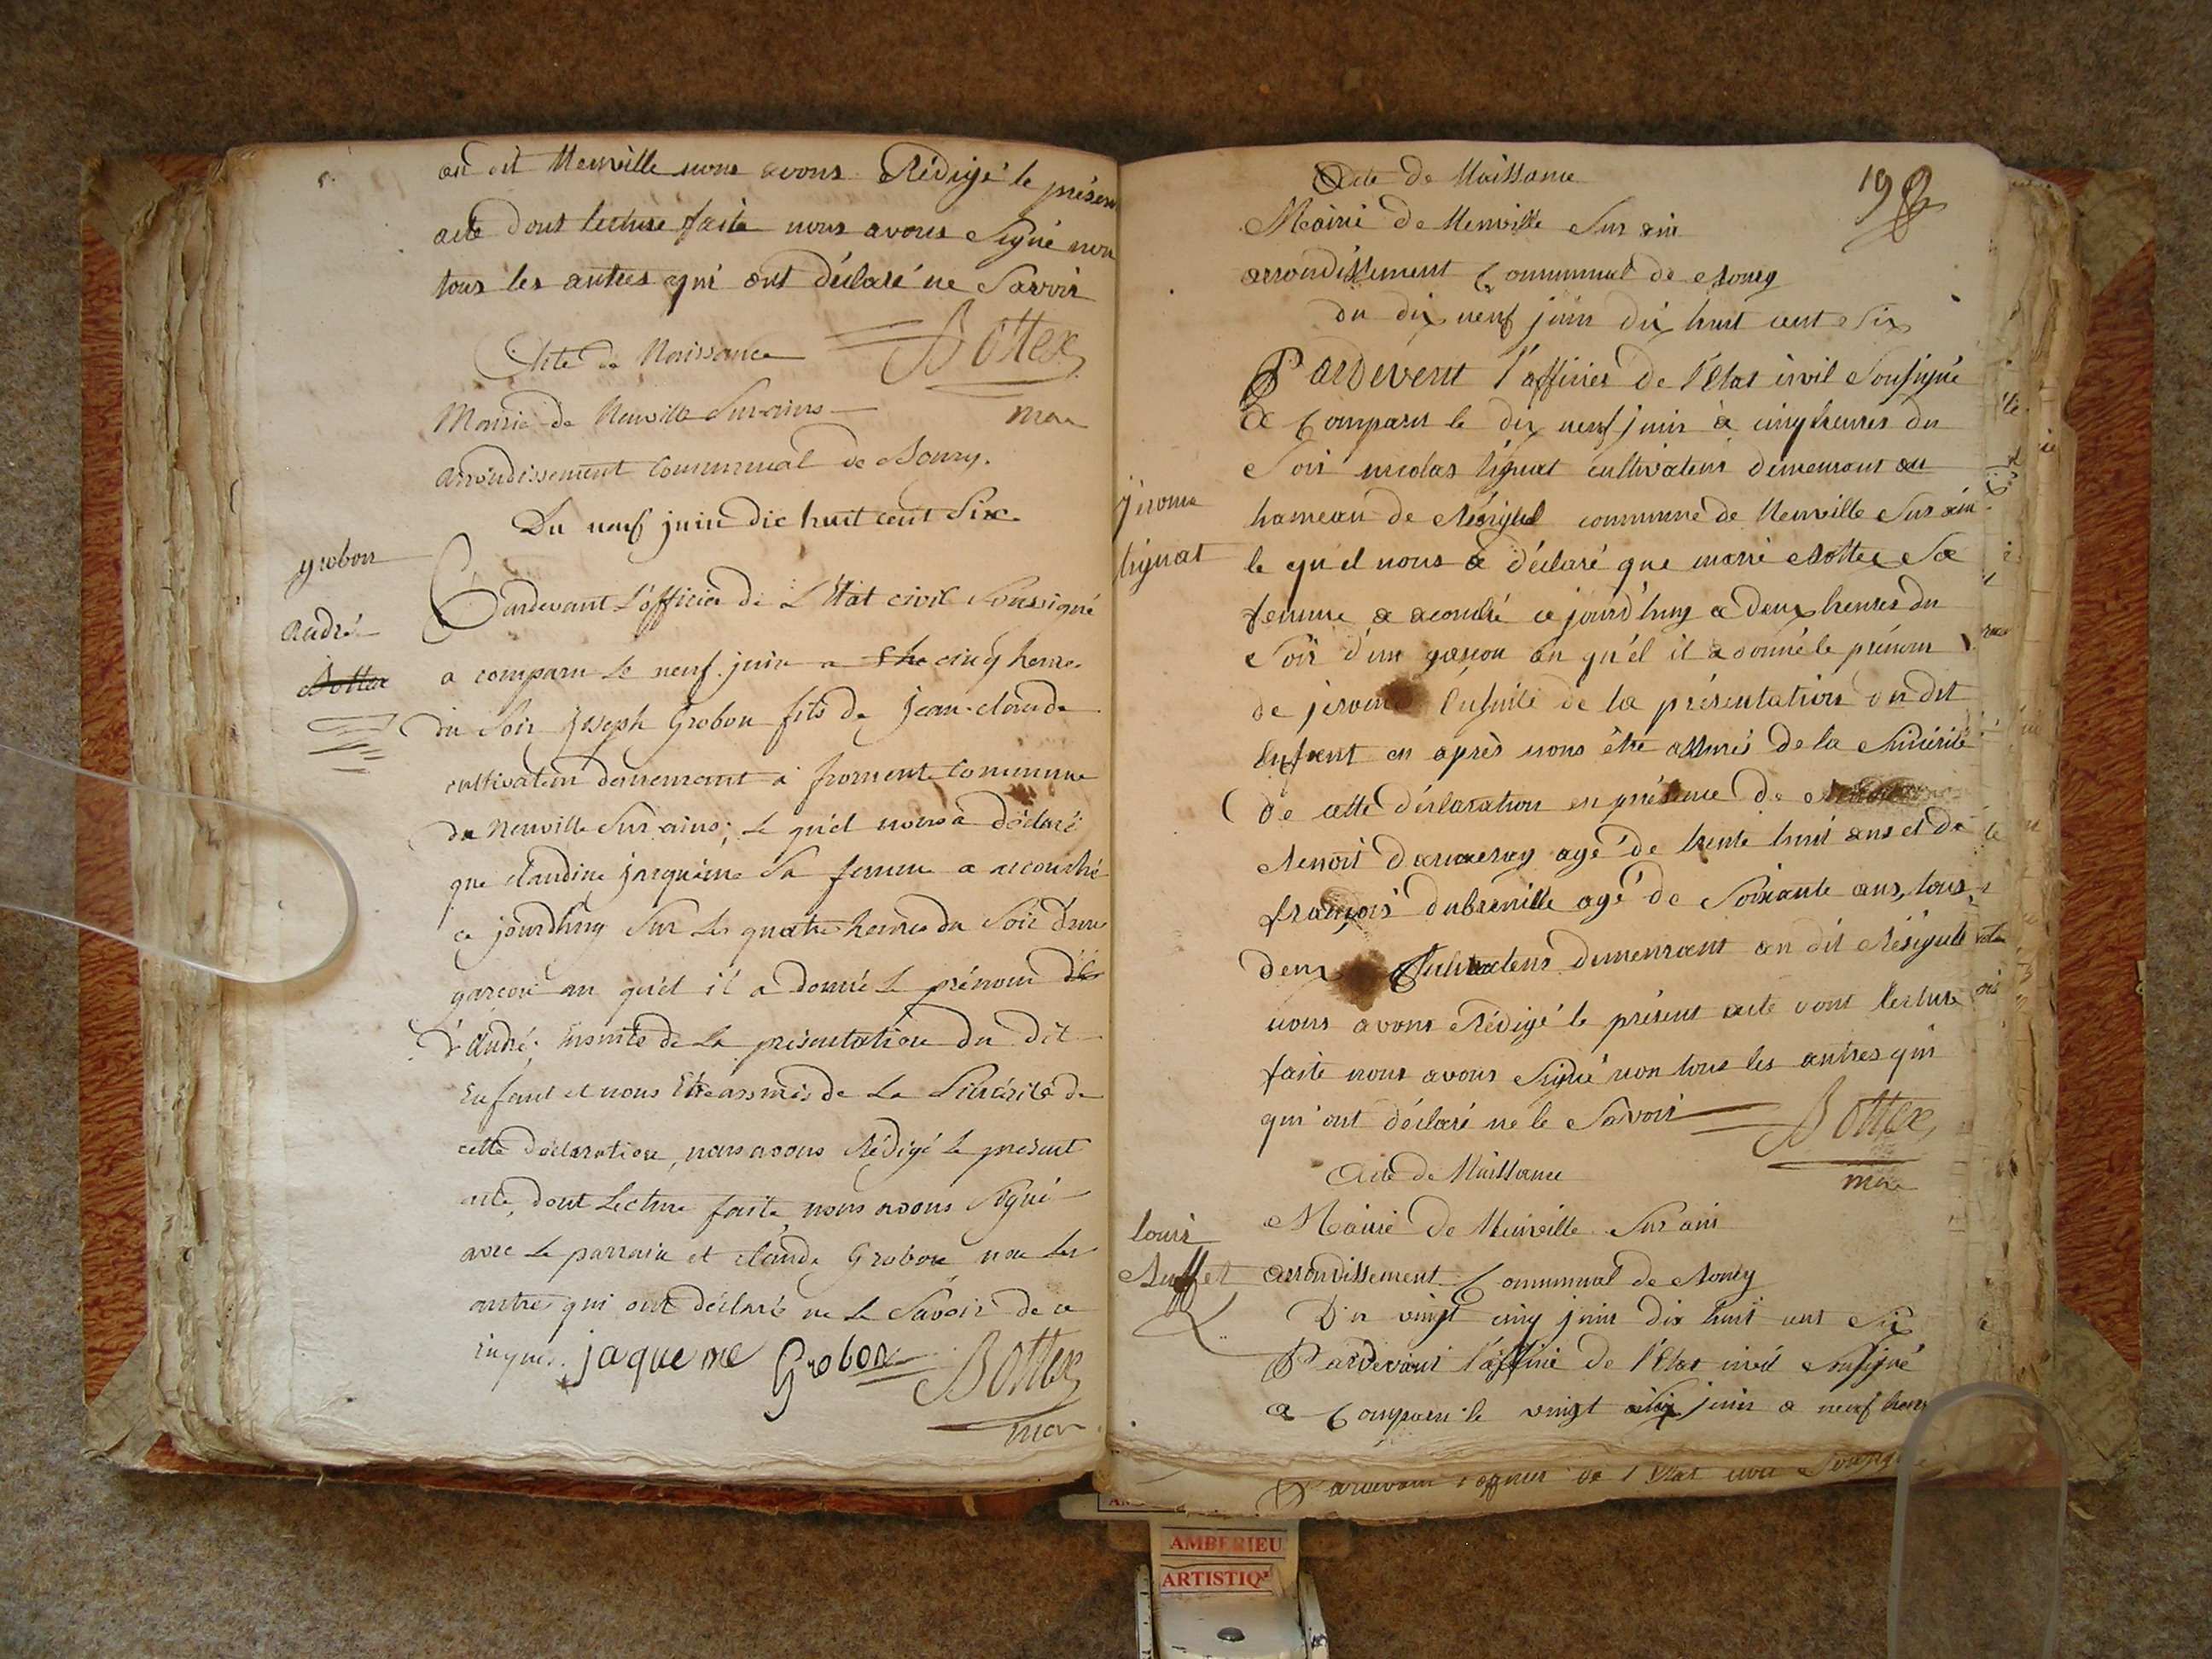 au dit Neuville nous avons Rédigé le présen
acte dont lecture faite nous avons Signé non
tous les autres qui ont déclaré ne Savoir
Bottex
mere
Acte de Naissance
Mairie de Neuville Sur ains
arrondissement Communal de Bourg.
Du neuf juin dix huit cent Six
grobon
André
Bottex
Pardevant L'officier de L'Etat civil Soussigné
a comparu Le neuf juin a cinq heures
du Soir Joseph Grobon fils de Jean-claude
cultivateur demeurant a froment Commune
de Neuville Sur ains; Le quel nous a déclaré
que claudine jaqueme Sa femme a accouché
ce jourdhuy Sur Les quatre heures du Soir d'un
garcon au quel il a donné Le prénom de
d'André; Ensuite de La présentation du dit
Enfant et nous Etre assurés de La Sincérité de
cette déclaration, nous avons Rédigé Le présent
acte, dont Lecture faite nous avons Signé
avec Le parrain et claude Grobon non Les
autres qui ont déclaré ne Le Savoir de ce
requis. jaqueme Grobon Bottex
198
Acte de Naissance
Mairie de Neuville Sur ain
arrondissement Communal de Bourg
du dix neuf juin dix huit cent Six
Pardevent l'officier de l'Etat civil Sousigné
a Comparu le dix neuf juin a cinq heures du
Soir nicolas lignat cultivateur demeurant au
jerome
lignat
hameau de Résigul commune de Neuville Sur ain
le quel nous a déclaré que marie Bottex Sa
femme a acouché ce jourd'huy a deux heures du
Soir d'un garçon au quel il a donné le prénom
de jerome Ensuite de la présentation du dit
Enfant en après nous être assurés de la Sincérité
de cette déclaration en présence de
Benoit agé de trente huit ans et de
françois dubreuille agé de Soixante ans, tous
deux Cultivateurs demeurant au dit Résigule
nous avons Rédigé le présent acte dont lecture
faite nous avons Signé non tous les autres qui
qui ont déclaré ne le Savoir
Bottex
Acte de Naissance
Mairie de Neuville Sur ain
louis
Buffet
arrondissement Communal de Bourg
Du vingt cinq juin dix huit cent Six
Pardevant l'officié de l'Etat civil Sousigné
a Comparu le vingt juin a neuf heur
Pardevant l'officier de l'Etat civil Sousigné
AMBERIEU
ARTISTIQ